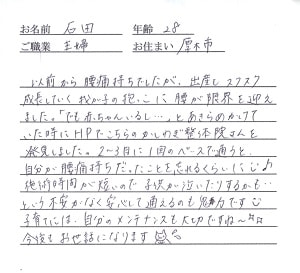 お名前 石田 年齢 28
ご職業 主婦 お住まい 厚木市
以前から腰痛持ちでしたが、出産しスクスク
成長していく我が子の抱っこに腰が限界を迎え
ました。「でも赤ちゃんいるし…」とあきらめかけて
いた時にHPでこちらのかしわぎ整体院さんを
発見しました。2~3日に1回のペースで通うと、
自分が腰痛持ちだったことを忘れるくらいに♪
施術時間が短いので子供が泣いたりするかも…
という不安がなく安心して通えるのも魅力です
子育てには、自分のメンテナンスも大切ですね~
今後もお世話になります